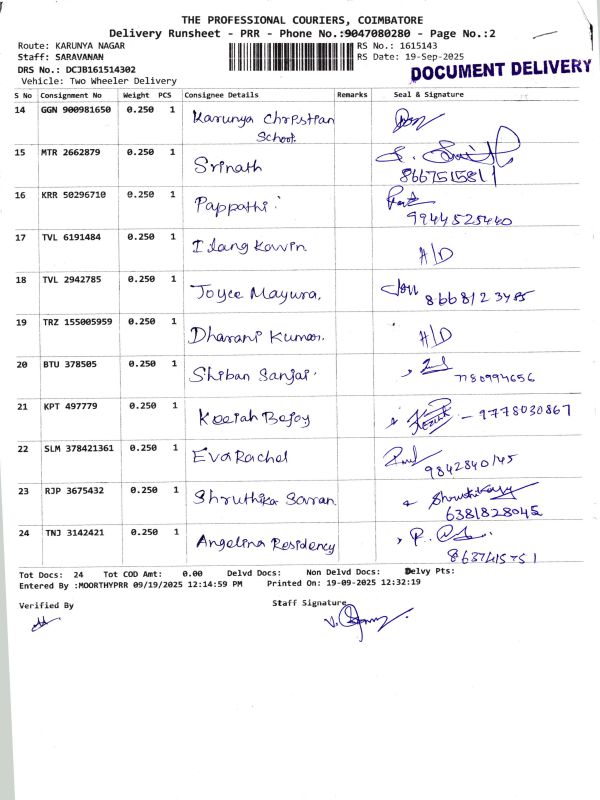 THE PROFESSIONAL COURIERS, COIMBATORE
Delivery Runsheet - PRR - Phone No.:9047080280 - Page No.:2
Route: KARUNYA NAGAR RS No.: 1615143
Staff: SARAVANAN RS Date: 19-Sep-2025
DRS No.: DCJB161514302 DOCUMENT DELIVERY
Vehicle: Two Wheeler Delivery
S No Consignment No Weight PCS Consignee Details Remarks Seal & Signature
14 GGN 900981650 0.250 1 Karunya Christian
School.
15 MTR 2662879 0.250 1 Srinath
8667515811
16 KRR 50296710 0.250 1 Pappathi
9944525440
17 TVL 6191484 0.250 1 Ilang Kavin A/D
18 TVL 2942785 0.250 1 Joyce Mayura. 8668123485
19 TRZ 155005959 0.250 1 Dharani Kumar. A/D
20 BTU 378505 0.250 1 Shiban Sanjai.
21 KPT 497779 0.250 1 Keziah Bejoy - 9778030867
22 SLM 378421361 0.250 1 Eva Rachel
9842840145
23 RJP 3675432 0.250 1 Shruthika Saran
6381828045
24 TNJ 3142421 0.250 1 Angelina Residency
8637415751
Tot Docs: 24 Tot COD Amt: 0.00 Delvd Docs: Non Delvd Docs: Delvy Pts:
Entered By :MOORTHYPRR 09/19/2025 12:14:59 PM Printed On: 19-09-2025 12:32:19
Verified By Staff Signature